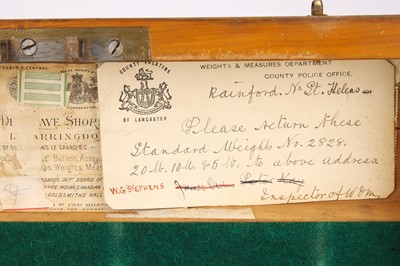 COUNTY PALATINE
OF LANCASTER
WEIGHTS & MEASURES DEPARTMENT
COUNTY POLICE OFFICE,
Rainford. Nr St. Helens
Please return these
Standard Weights No. 2828.
20 lb. 10 lb & 5 lb. to above address
W.G. STEPHENS
Inspector of W & M.
AVE SHOR
ARRINGDO
OFFICE, INDIAN, CANADIAN
GOLDSMITHS' HALL